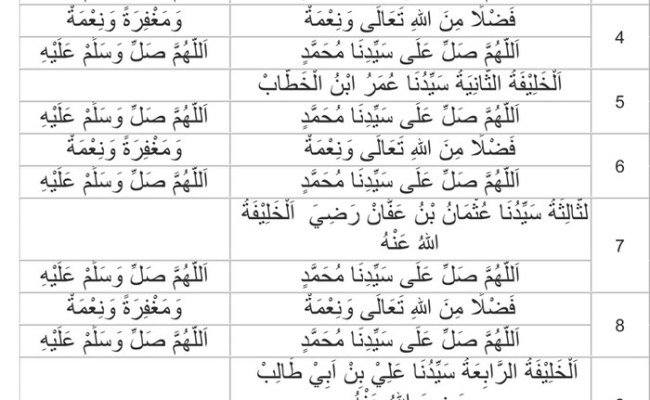 4
فَضْلًا مِنَ اللهِ تَعَالَى وَنِعْمَةْ وَمَغْفِرَةً وَنِعْمَةْ
اَللّٰهُمَّ صَلِّ عَلَى سَيِّدِنَا مُحَمَّدٍ اَللّٰهُمَّ صَلِّ وَسَلِّمْ عَلَيْهِ
5
اَلْخَلِيْفَةُ الثَّانِيَةُ سَيِّدُنَا عُمَرُ ابْنُ الْخَطَّابْ
اَللّٰهُمَّ صَلِّ عَلَى سَيِّدِنَا مُحَمَّدٍ اَللّٰهُمَّ صَلِّ وَسَلِّمْ عَلَيْهِ
6
فَضْلًا مِنَ اللهِ تَعَالَى وَنِعْمَةْ وَمَغْفِرَةً وَنِعْمَةْ
اَللّٰهُمَّ صَلِّ عَلَى سَيِّدِنَا مُحَمَّدٍ اَللّٰهُمَّ صَلِّ وَسَلِّمْ عَلَيْهِ
7
لثَّالِثَةُ سَيِّدُنَا عُثْمَانُ بْنُ عَفَّانْ رَضِيَ اَلْخَلِيْفَةُ
اللهُ عَنْهُ
اَللّٰهُمَّ صَلِّ عَلَى سَيِّدِنَا مُحَمَّدٍ اَللّٰهُمَّ صَلِّ وَسَلِّمْ عَلَيْهِ
8
فَضْلًا مِنَ اللهِ تَعَالَى وَنِعْمَةْ وَمَغْفِرَةً وَنِعْمَةْ
اَللّٰهُمَّ صَلِّ عَلَى سَيِّدِنَا مُحَمَّدٍ اَللّٰهُمَّ صَلِّ وَسَلِّمْ عَلَيْهِ
اَلْخَلِيْفَةُ الرَّابِعَةُ سَيِّدُنَا عَلِيْ بِنْ اَبِيْ طَالِبْ